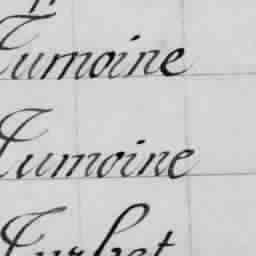 Tumoine
Tumoine
Turbet